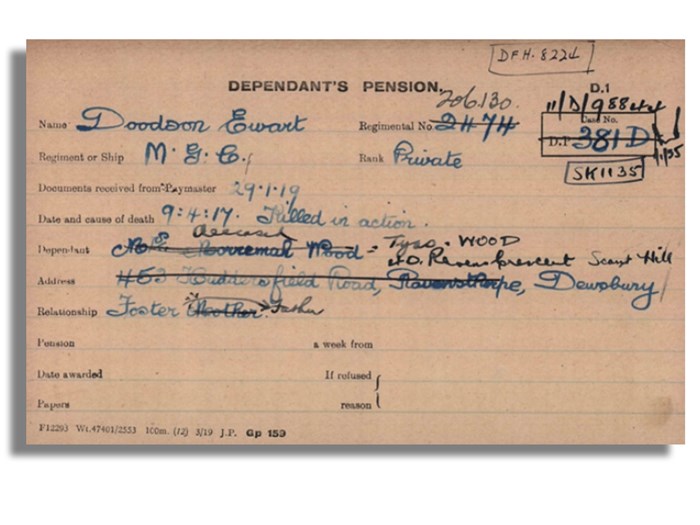 DFH. 8224
DEPENDANT'S PENSION.
D.1
206.130.
11/D/988
Name Doodson Ewart Regimental No. 2474 Case No. D.P. 381D
Regiment or Ship M. G. C. Rank Private
SK1135
Documents received from Paymaster 29.1.19
Date and cause of death 9:4:17. Killed in action.
deceased
Dependant Mrs Wood = Tyso. WOOD
Scout Hill
Address 453 Huddersfield Road, Ravensthorpe, Dewsbury
Relationship Foster Mother. Father
Pension a week from
Date awarded If refused
Papers reason
F12293 Wt.47401/2553 100m. (12) 3/19 J.P. Gp 159